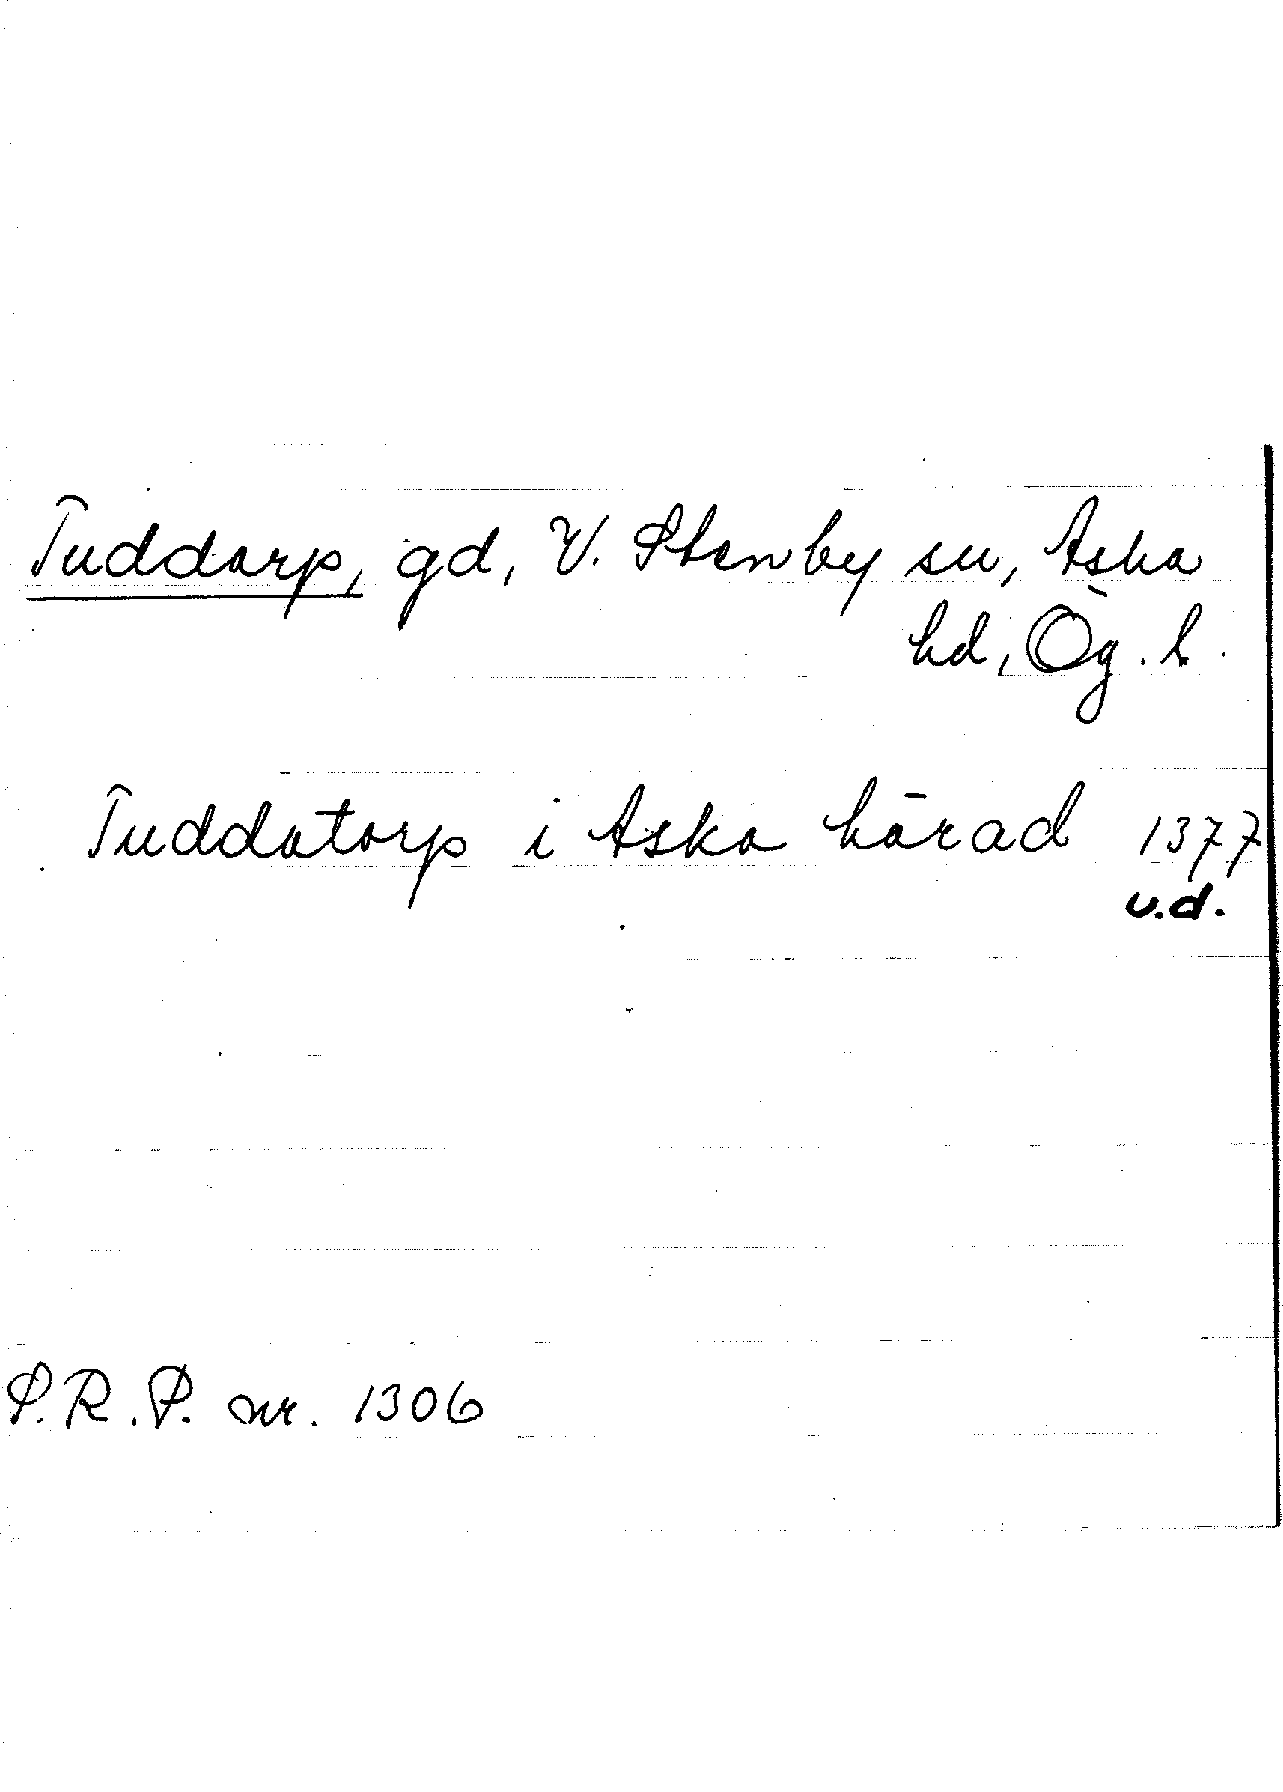 Tuddarp, gd, V. Stenby sn, Aska
hd, Ög. l.
Tuddatorp i Aska härad 1377
u.d.
S.R.P. nr. 1306